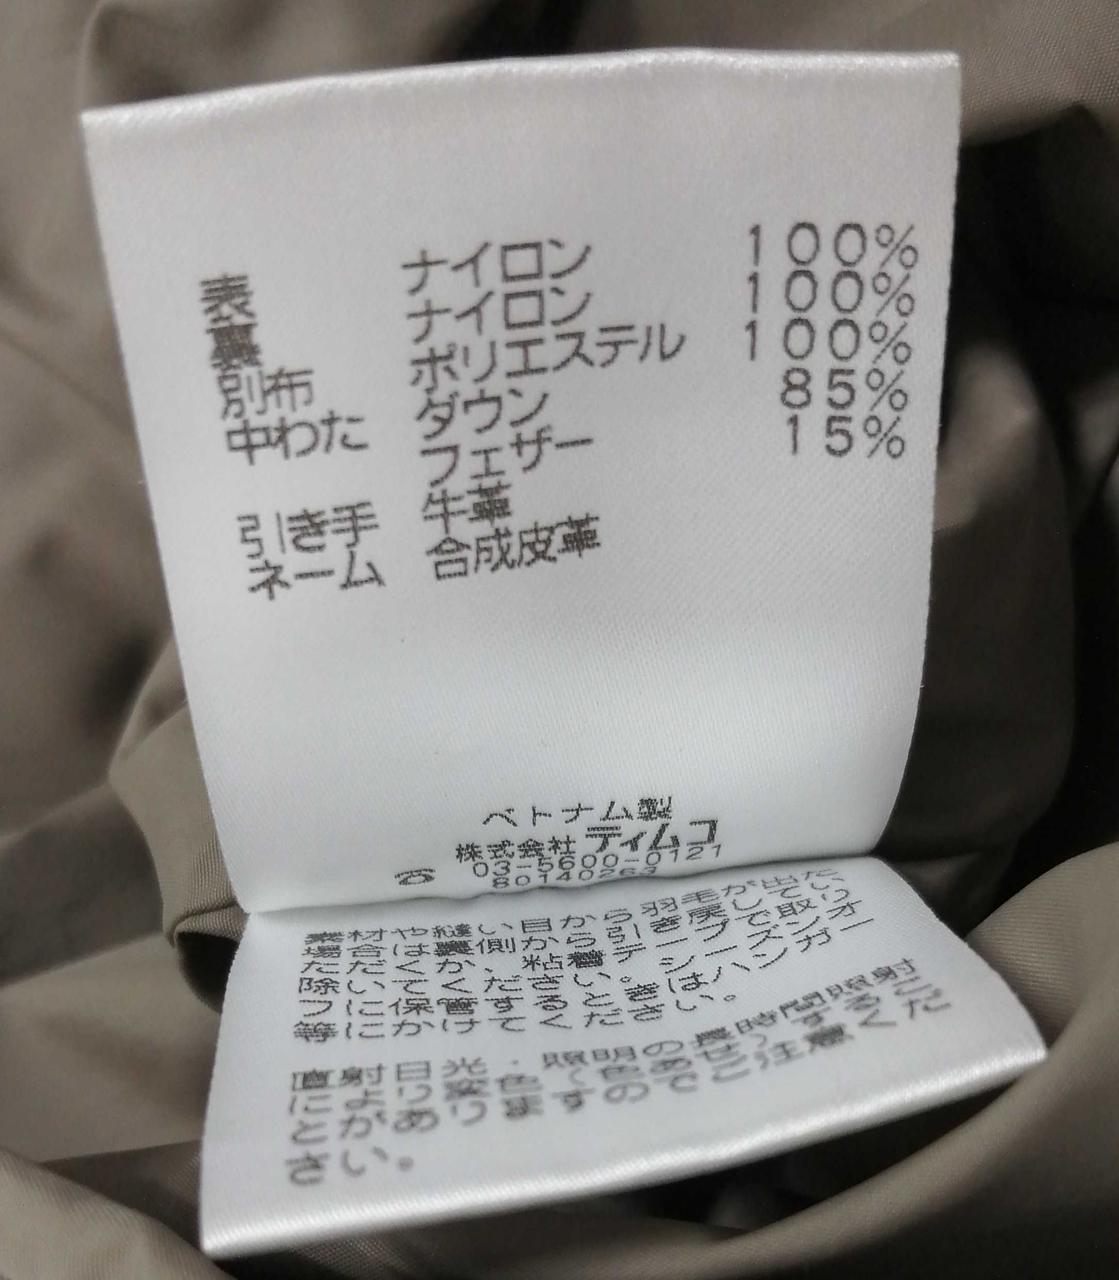 表 ナイロン 100%
裏 ナイロン 100%
別布 ポリエステル 100%
中わた ダウン 85%
フェザー 15%
引き手 牛革
ネーム 合成皮革
ベトナム製
株式会社 ティムコ
03-5600-0121
80140263
素材や縫い目から羽毛が出た
場合は裏側から引き戻してい
ただくか、粘着テープで取り
除いてください。シーズンオ
フに保管するときはハンガー
等にかけてください。
直射日光・照明の長時間照射
により変〜色あせすること
があり
ますのでご注意くだ
さい。